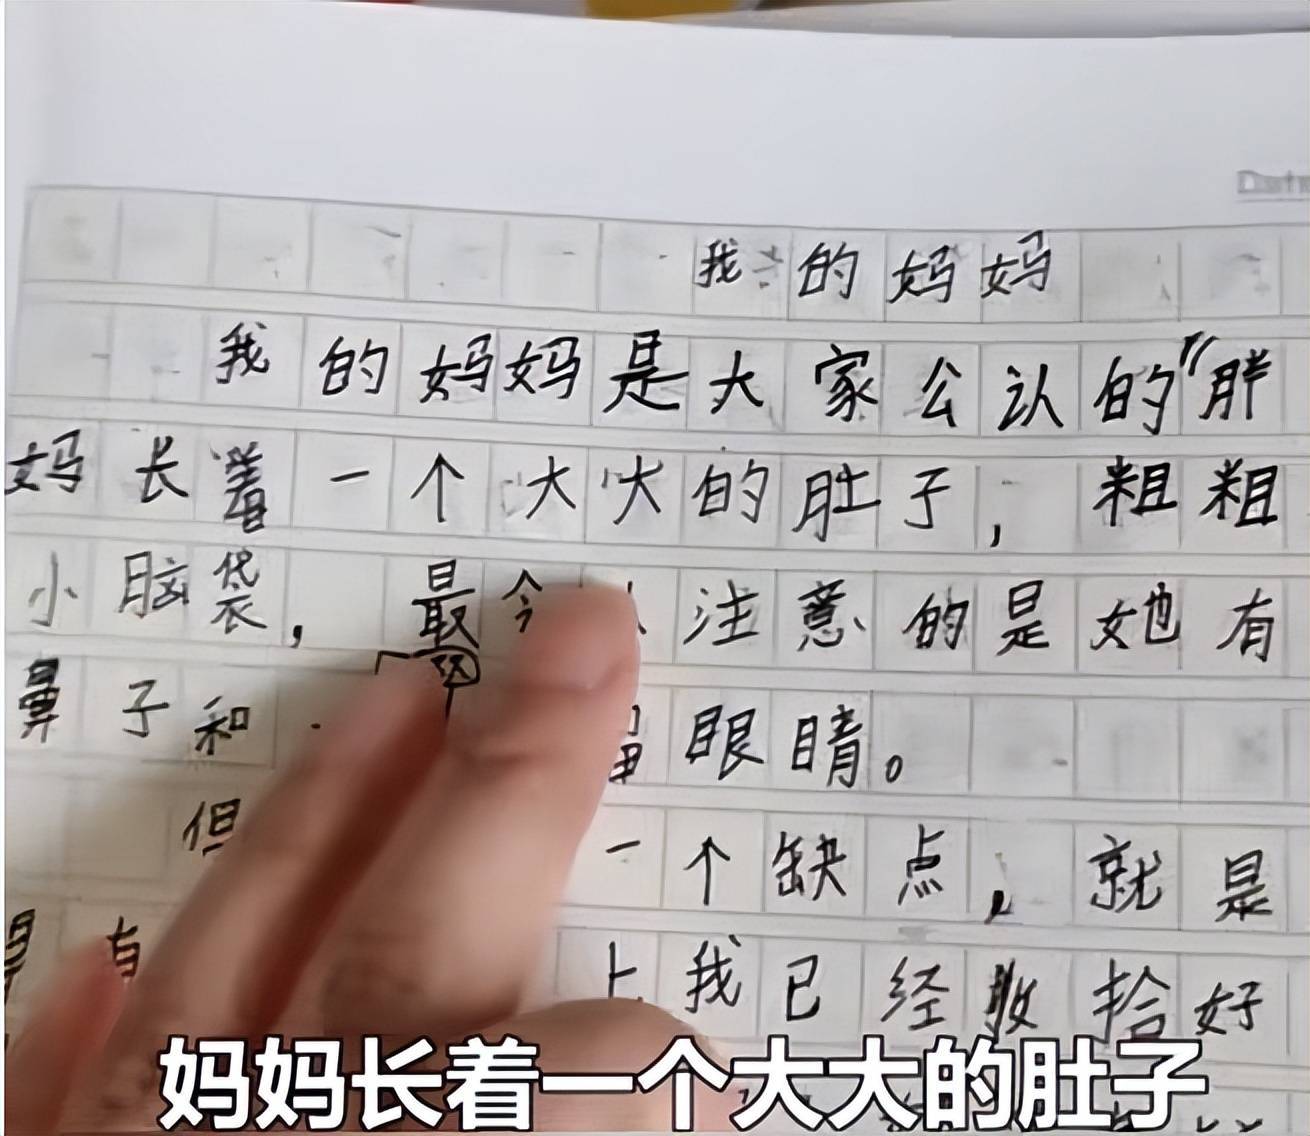 Date
我的妈妈
我的妈妈是大家公认的“胖
妈长着一个大大的肚子，粗粗
小脑袋，最令人注意的是她有
鼻子和眼睛。
但一个缺点，就是
有上我已经收拾好
妈妈长着一个大大的肚子